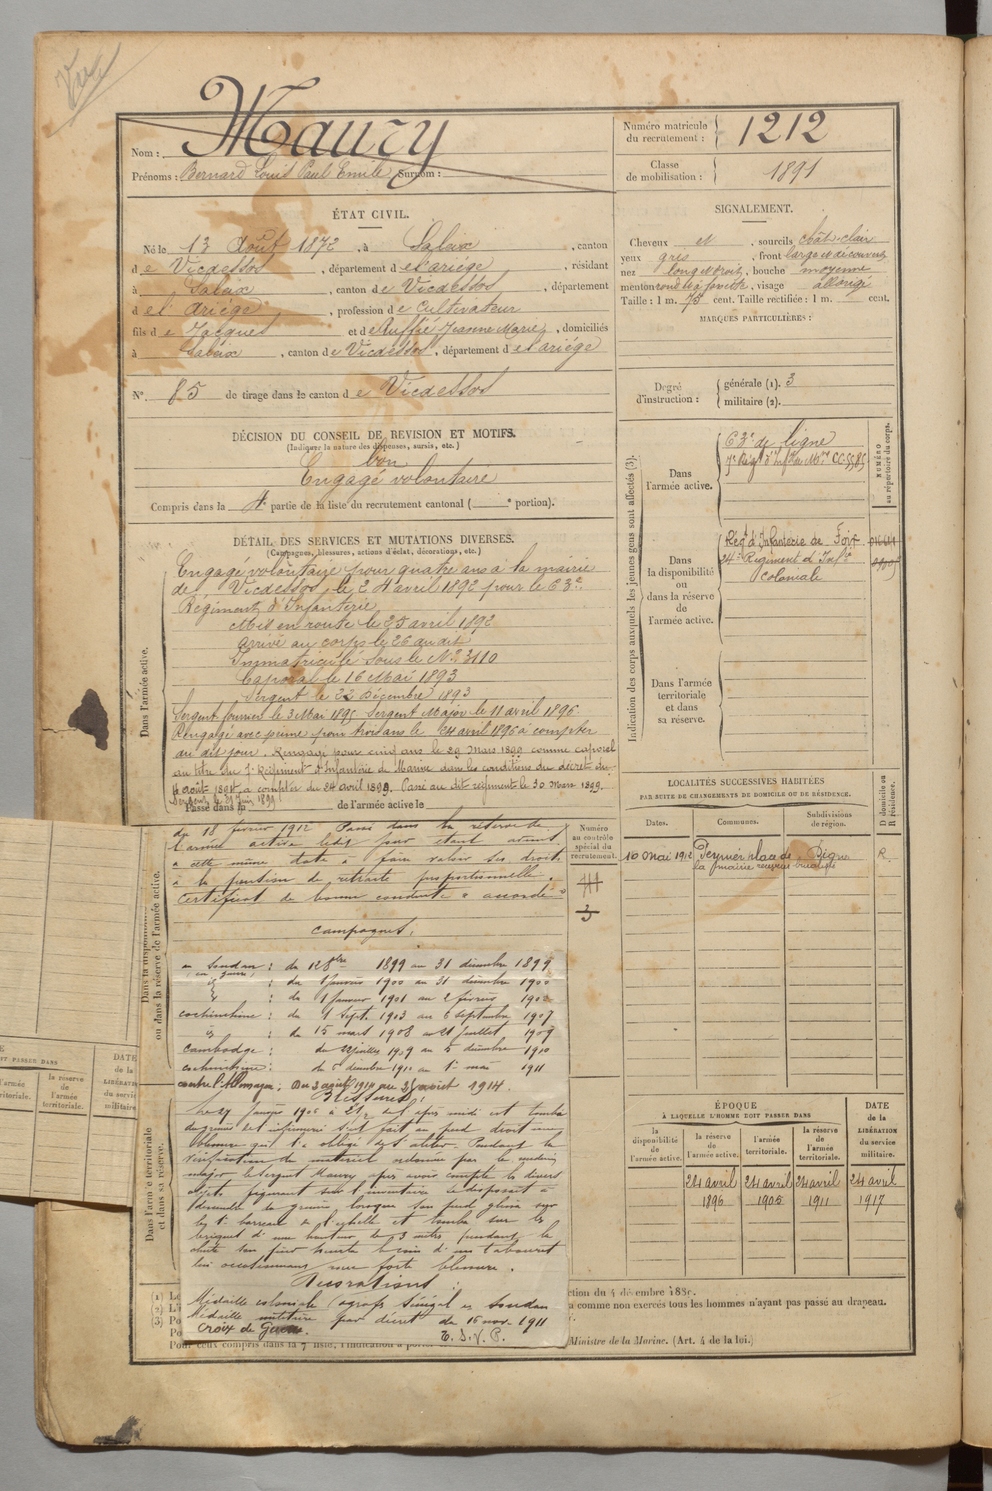 Vu
Nom : Maury
Prénoms : Bernard Louis Paul Emile Surnom :
Numéro matricule du recrutement : 1212
Classe de mobilisation : 1891
ÉTAT CIVIL.
Né le 13 Août 1872, à Saleix, canton
de Vicdessos, département de l'ariége, résidant
à Saleix, canton de Vicdessos, département
de l'Ariége, profession de Cultivateur
fils de Jacques et de Ruffié Jeanne Marie, domiciliés
à Saleix, canton de Vicdessos, département de l'ariége
N° 85 de tirage dans le canton de Vicdessos
SIGNALEMENT.
Cheveux et, sourcils chât. clair
yeux gris, front large et découvert
nez long et droit, bouche moyenne
menton rond et à fossette, visage allongé
Taille : 1 m. 75 cent. Taille rectifiée : 1 m. cent.
MARQUES PARTICULIÈRES :
Degré d'instruction : générale (1). 3
militaire (2).
DÉCISION DU CONSEIL DE REVISION ET MOTIFS.
(Indiquer la nature des dispenses, sursis, etc.)
bon
Engagé volontaire
Compris dans la 4e partie de la liste du recrutement cantonal ( e portion).
DÉTAIL DES SERVICES ET MUTATIONS DIVERSES.
(Campagnes, blessures, actions d'éclat, décorations, etc.)
Dans l'armée active.
Engagé volontaire pour quatre ans à la mairie
de Vicdessos, le 24 avril 1892 pour le 63e
Régiment d'Infanterie
Mis en route le 25 avril 1892
Arrivé au corps le 26 au dit
Immatriculé sous le N° 3110
Caporal le 16 Mai 1893
Sergent le 22 Décembre 1893
Sergent fourrier le 3 Mai 1895 Sergent Major le 11 avril 1896
Rengagé avec prime pour trois ans le 24 avril 1896 à compter
du dit jour. Rengagé pour cinq ans le 29 Mars 1899 comme caporal
au titre du 7e Régiment d'Infanterie de Marine dans les conditions du décret du
4 août 1894, à compter du 24 avril 1899. Passé au dit régiment le 30 Mars 1899.
Sergent le 21 Juin 1899
Passé dans la de l'armée active le
Dans la disponibilité ou dans la réserve de l'armée active.
du 18 février 1912 Passé dans la réserve de
l'armée active ledit jour étant admis
à cette même date à faire valoir ses droits
à la pension de retraite proportionnelle.
Certificat de bonne conduite "accordé"
Campagnes.
au Soudan : du 12 8bre 1899 au 31 décembre 1899
en guerre
id : du 1 Janvier 1900 au 31 décembre 1900
id : du 1 Janvier 1901 au 2 février 1902
cochinchine : du 1 Sept. 1903 au 6 septembre 1907
id : du 15 mars 1908 au 21 Juillet 1909
Cambodge : du 22 juillet 1909 au 5 décembre 1910
cochinchine : du 6 décembre 1910 au 1er mai 1911
contre l'Allemagne : Du 3 août 1914 au 31 août 1914.
Blessures :
Le 29 Janvier 1906 à 2h 1/2 de l'après midi est tombé
du grenier de l'infirmerie s'est fait au pied droit une
blessure qui l'a obligé de s'aliter. Pendant la
vérification du matériel ordonnée par le médecin
major le Sergent Maury après avoir compté les divers
objets figurant sur l'inventaire se disposait à
descendre du grenier lorsque son pied glissa sur
le 1er barreau de l'échelle et tomba sur les
briques d'une hauteur de 3 mètres pendant la
chute son pied heurta le coin d'un tabouret
lui occasionnant une forte blessure.
Décorations :
Médaille coloniale (agrafe Sénégal et Soudan
Médaille militaire par décret du 16 nov. 1911
Croix de Guerre.
T.S.V.P.
Dans l'armée territoriale et dans sa réserve.
Numéro au contrôle spécial du recrutement.
3
Indication des corps auxquels les jeunes gens sont affectés (3).
NUMÉRO au répertoire du corps.
Dans l'armée active.
63e de ligne
7e Régt d'Infrie de Mne
Dans la disponibilité ou dans la réserve de l'armée active.
Régt d'Infanterie de Foix
24e Regiment d'Infie
Coloniale
Dans l'armée territoriale et dans sa réserve.
LOCALITÉS SUCCESSIVES HABITÉES
PAR SUITE DE CHANGEMENTS DE DOMICILE OU DE RÉSIDENCE.
Dates. Communes. Subdivisions de région. D domicile ou R résidence.
16 Mai 1912 R.
ÉPOQUE
À LAQUELLE L'HOMME DOIT PASSER DANS
DATE de la LIBÉRATION du service militaire.
la disponibilité de l'armée active.
la réserve de l'armée active.
l'armée territoriale.
la réserve de l'armée territoriale.
24 avril 1896
24 avril 1905
24 avril 1911
24 avril 1917
ction du 4 décembre 1889.
comme non exercés tous les hommes n'ayant pas passé au drapeau.
Ministre de la Marine. (Art. 4 de la loi.)